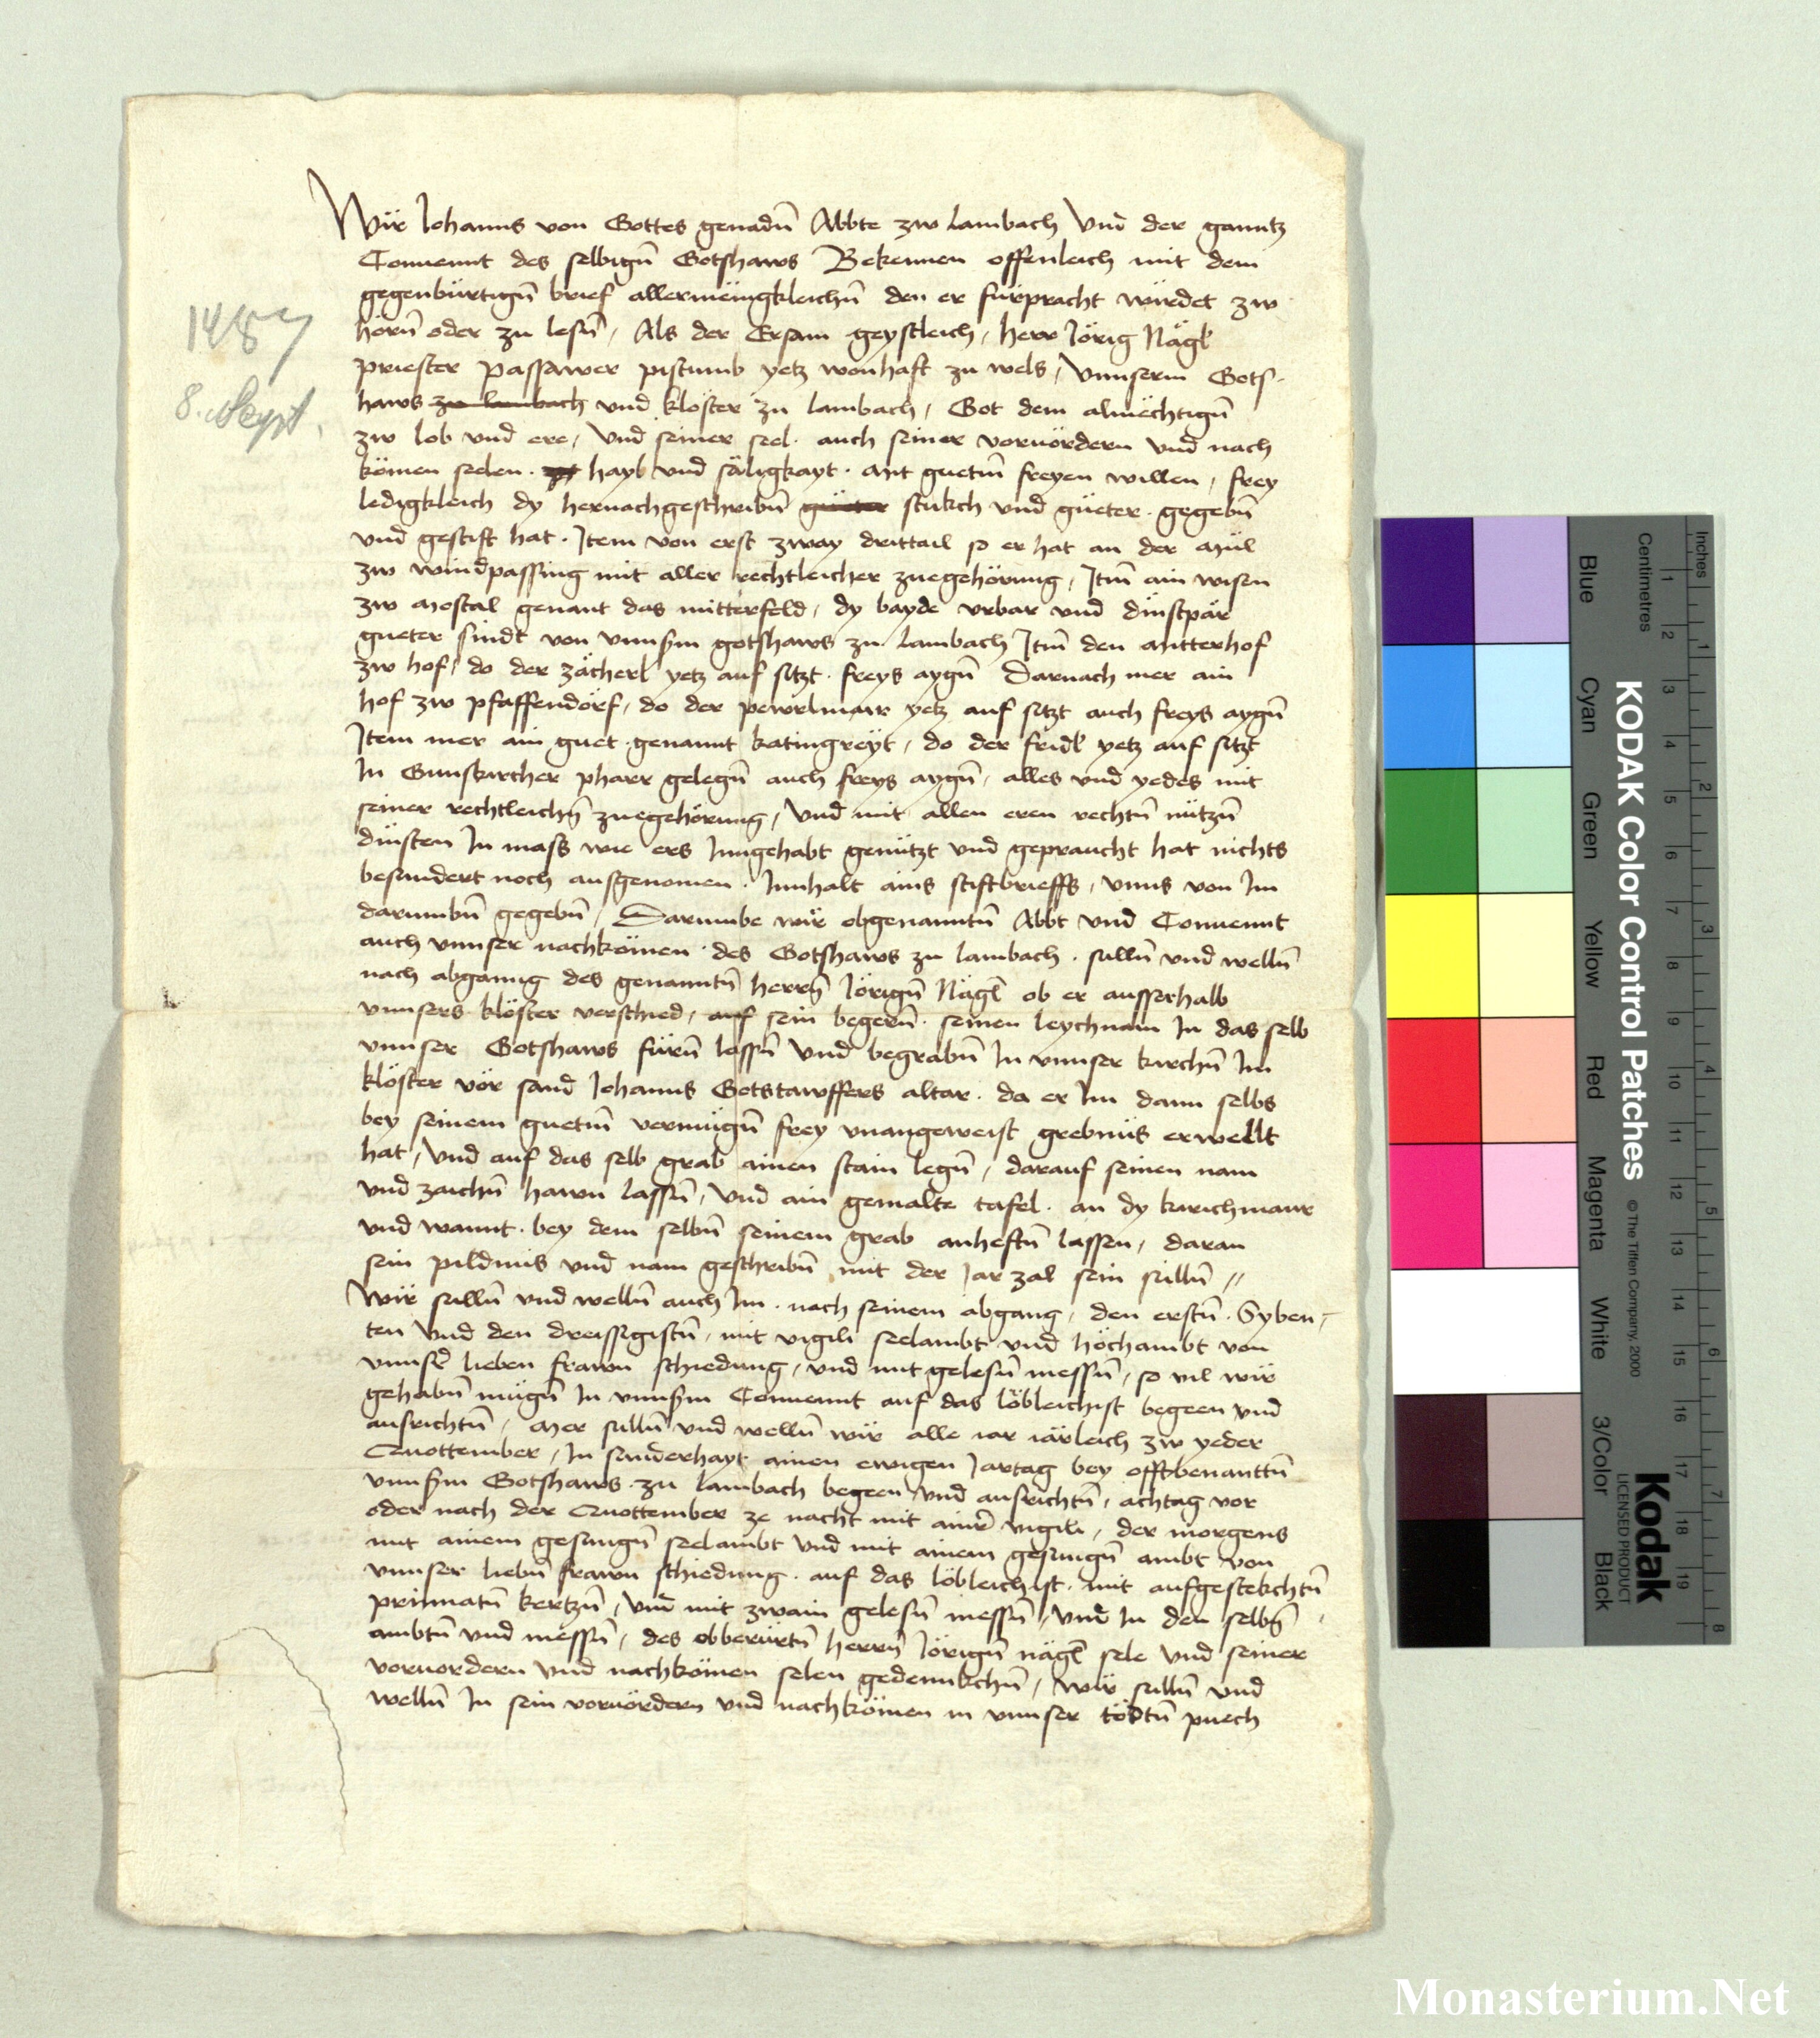 Wir Johanns von Gottes genadn̄ Abbte zw Lambach Vnd der ganntz
Conuennt des selbign̄ Gotshaws Bekennen offenleich mit dem
gegenbürtign̄ brief allermëingkleichn̄ den er fürpracht würdet zw
hörn̄ oder zu lesn̄, Als der Ersam geystleich, herr Jörig Nägl
priester Passawer pistumb yetz wonhaft zu wels, Vnnserm Gots-
haws zu lambach und kloster zu lambach, Got dem almëchtign̄
zw lob vnd ere, Vnd seiner seel auch seiner voruördern vnd nach
kömen seelen hayl vnd säligkayt. Mit guetm̄ freyen willen, frey
ledigkleich dy hernachgeschribn̄ güeter stukch vnd güeter gegebn̄
vnd gestift hat. Item von erst zway drittail so er hat an der Mül
zw windpassing mit aller rechtleicher zuegehörung, Itm̄ ain wisen
zw Mostal genant das mitterfeld, dy bayde vrbar vnd dinstpär
gueter sindt von vnnserm gotshaws zu lambach Itm̄ den Mitterhof
zw hof, do der zächerl yetz auf sitzt. freys aygn̄ Darnach mer ain
hof zw pfaffendörf, do der pewrlmair yetz auf sitzt auch freys aygn̄
Item mer ain guet genannt katingreyt, do der fridl yetz auf sitzt
In Gunskircher pharr gelegn̄ auch freys aygn̄, alles vnd yedes mit
seiner rechtleichn̄ zuegehörung, Vnd mit allen eren rechtn̄ nützn̄
dinsten In mass wie ers Inngehabt genützt vnd gepraucht hat nichts
besundert noch ausgenomen. Innhalt ains stiftbrieffs, vnns von Im
darumbn̄ gegebn̄, Darumbe wir obgenanntn̄ Abbt vnd Conuennt
auch vnnser nachkömen des Gotshaws zu lambach. sulln̄ vnd welln̄
nach abganng des genanntn̄ herrn̄ Jörign̄ Nägl ob er ausserhalb
vnnsers klöster verschied, auf sein begern̄. seinen leychnam In das selb
vnnser Gotshaws fürn̄ lassn̄ Vnd begrabn̄ In vnnser kirchn̄ Im
klöster vör sand Johanns Gotstawffers altar. da er Im dann selbs
bey seinem guetm̄ vermügn̄ frey vnangeweist grebnüs erwellt
hat, Vnd auf das selb grab ainen stain legn̄, darauf seinen nam
vnd zaichn̄ hawn lassn̄, Vnd ain gemalte tafel. an dy kirichmaur
vnd wannt. bey dem selbn̄ seinem grab anheftn̄ lassen, daran
sein pildnüs vnd nam geschribn̄ mit der Jar zal sein sülln̄ //
Wir sulln̄ vnd welln̄ auch Im. nach seinem abgang, den erstn̄. Syben-
ten Vnd den dreissigistn̄, mit vigili seelambt vnd höchambt von
vnnsr̄ lieben frawn schiedung, vnd mit gelesn̄ messn̄, so vil wir
gehabn̄ mügn̄ In vnnserm Conuennt auf das löbleichist begeen vnd
ausrichtn̄, Mer sulln̄ vnd welln̄ wir alle iar iärleich zw yeder
Quottember, In sünderhayt ainen ewigen Jartag bey offtbenanttn̄
vnnserm Gotshaws zu lambach begeen vnd ausrichtn̄, achtag vor
oder nach der Quottember ze nacht mit ainr̄ vigili, der morgens
mit ainem gesungn̄ seelambt Vnd mit ainem gesungn̄ ambt von
vnnser liebn̄ frawn schiedung. auf das löbleichist. mit aufgestekchtn̄
prinnatn̄ kertzn̄, vnd mit zwain gelesn̄ messn̄, vnd In den selbn̄
ambtn̄ vnd messn̄, des obberürtn̄ herrn̄ Jörign̄ nägl sele Vnd seiner
voruordern Vnd nachkömen selen gedennkchn̄, Wir sulln̄ vnd
welln̄ In sein voruördern vnd nachkömen in vnnser tödtn̄ puech
1487
8. Sept.
Inches
Centimetres
1 2 3 4 5 6 7 8
1 2 3 4 5 6 7 8 9 10 11 12 13 14 15 16 17 18 19
KODAK Color Control Patches © The Tiffen Company, 2000
Kodak
LICENSED PRODUCT
Blue Cyan Green Yellow Red Magenta White 3/Color Black
Monasterium.Net